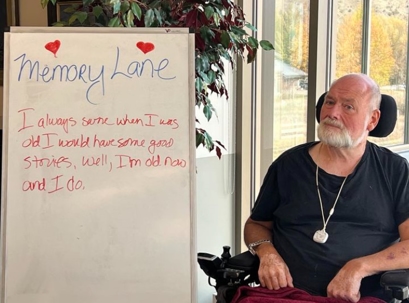 Memory Lane
I always swore when I was
old I would have some good
stories, Well, I'm old now
and I do.